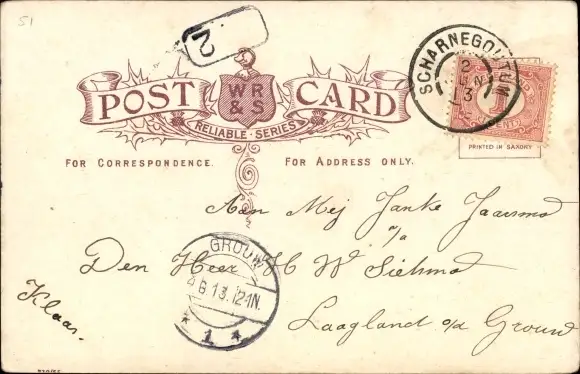 51
V
POST CARD
WR
&S
RELIABLE SERIES
FOR CORRESPONDENCE. FOR ADDRESS ONLY.
SCHARNEGOUTUM
2
13
1
PRINTED IN SAXONY
Aan Mej Janke Jaarsma
a/a
Den Heer H W Siekma
Laagland o/d Grouw
Klaas.
GROUW
13.12-1N.
* 1 *